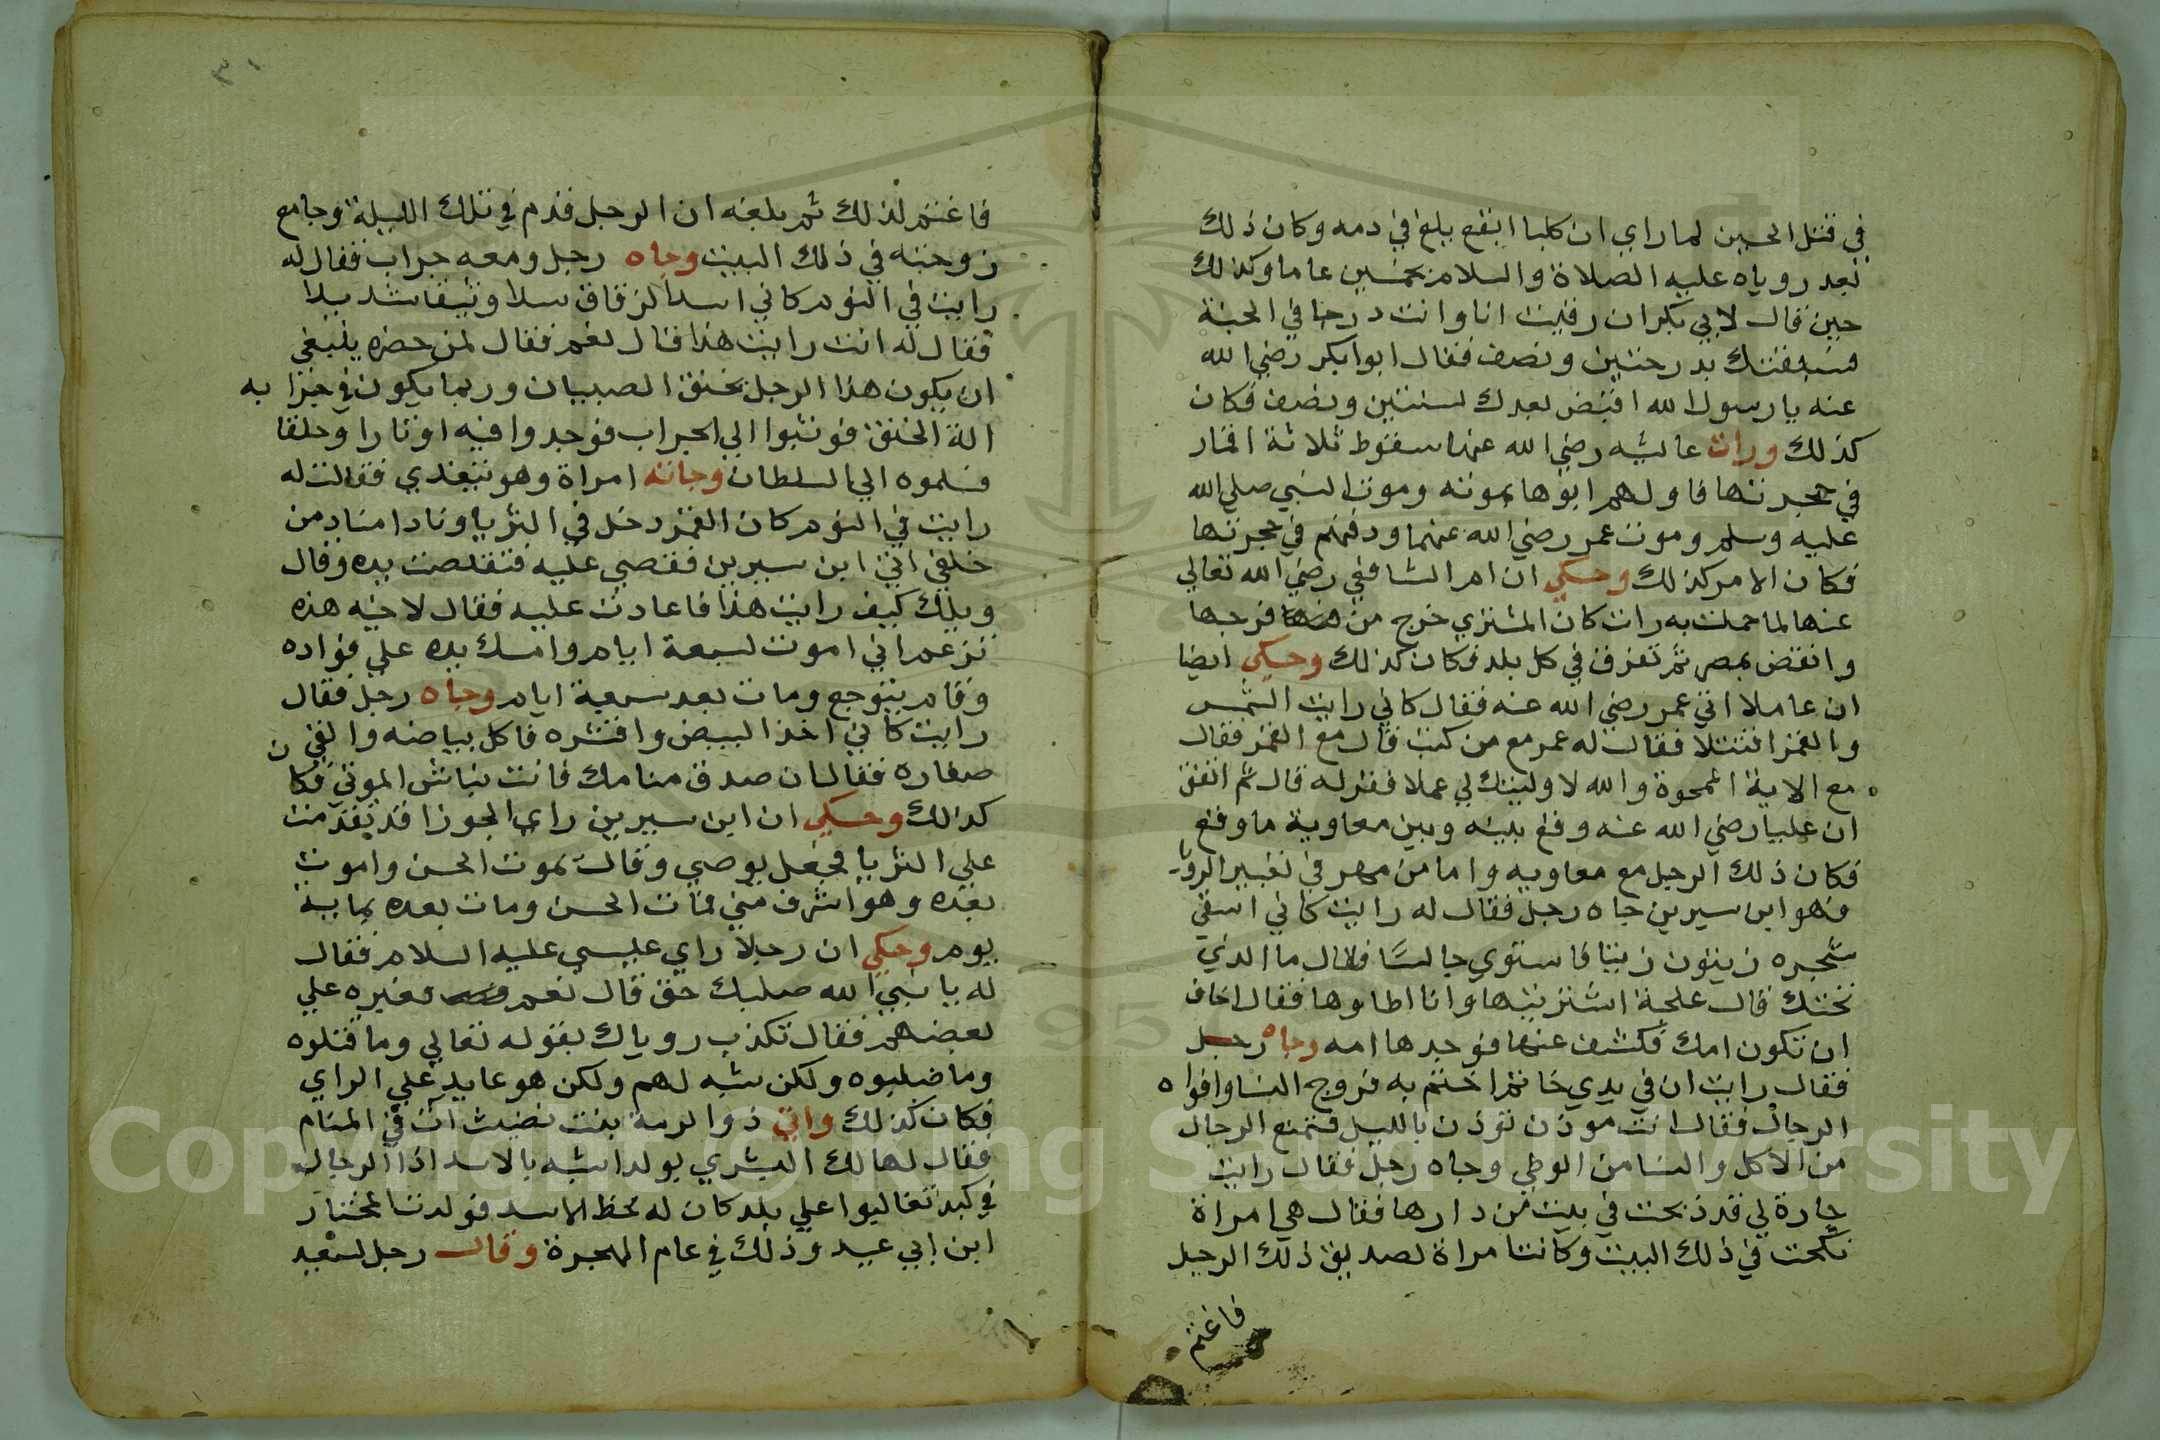 في قتل الحسين لما راي ان كلبا ابقع يلغ في دمه وكان ذلك
بعد روياه عليه الصلاة والسلام بخمسين عاما وكذلك
حين قال لابي بكر ان رقيت انا وانت درجا في الجنة
فسبقتك بدرجتين ونصف فقال ابوا بكر رضي الله
عنه يا رسول الله اقبض بعدك لسنتين ونصف فكان
كذلك ورات عايشه رضي الله عنها سقوط ثلاثة اقمار
في حجرتها فاولهم ابوها بموته وموت النبي صلي الله
عليه وسلم وموت عمر رضي الله عنهما ودفنهم في حجرتها
فكان الامر كذلك وحكي ان ام الشافعي رضي الله تعالي
عنها لما حملت به رات كان المشتري خرج من فرجها
وانقض بمصر ثم تفرق في كل بلد فكان كذلك وحكي ايضا
ان عاملا اتي عمر رضي الله عنه فقال كاني رايت الشمس
والقمر اقتتلا فقال له عمر مع من كنت قال مع القمر فقال
مع الاية الممحوة والله لا وليتك لي عملا فعزله قال ثم اتفق
ان عليا رضي الله عنه وقع بينه وبين معاوية ما وقع
فكان ذلك الرجل مع معاويه واما من مهر في تعبير الرويا
فهو ابن سيرين جاه رجل فقال له رايت كاني اسقي
شجره زيتون زيتا فاستوي جالسا فقال ما الذي
تحتك قال علجة اشتريتها وانا اطاوها فقال اخاف
ان تكون امك فكشف عنها فوجدها امه وجاه رجل
فقال رايت ان في يدي خاتما اختم به فروج النسا وافواه
الرجال فقال انت موذن توذن بالليل فتمنع الرجال
من الاكل والنسا من الوطي وجاه رجل فقال رايت
جارة لي قد ذبحت في بيت من دارها فقال هي امراة
نكحت في ذلك البيت وكانت امراة لصديق ذلك الرجل
فاغتم
فاغتم لذلك ثم بلغه ان الرجل قدم في تلك الليلة وجامع
زوجته في ذلك البيت وجاه رجل ومعه جراب فقال له
رايت في النوم كاني اسد الزقاق سدا وثيقا شديدا
فقال له انت رايت هذا قال نعم فقال لمن حضره ينبغي
ان يكون هذا الرجل يخنق الصبيان وربما يكون في جرابه
الة الخنق فوثبوا الي الجراب فوجدوا فيه اوتارا وحلقا
فسلموه الي السلطان وجاته امراة وهو يتغدي فقالت له
رايت في النوم كان القمر دخل في الثريا ونادا مناد من
خلفي ائتي ابن سيرين فقصي عليه فتقلصت يده وقال
ويلك كيف رايت هذا فاعادت عليه فقال لاخته هذه
تزعم اني اموت لسبعة ايام وامسك يده علي فواده
وقام يتوجع ومات بعد سبعة ايام وجاه رجل فقال
رايت كاني اخذ البيض واقشره فاكل بياضه والقي
صفاره فقال ان صدق منامك فانت نباش الموتي فكان
كذلك وحكي ان ابن سيرين راي الجوزا قد تقدمت
علي الثريا فجعل يوصي وقال يموت الحسن واموت
بعده وهو اشرف مني فمات الحسن ومات بعده بماية
يوم وحكي ان رجلا راي عيسي عليه السلام فقال
له يا نبي الله صلبك حق قال نعم فعبره علي
بعضهم فقال تكذب روياك بقوله تعالي وما قتلوه
وما صلبوه ولكن شبه لهم ولكن هو عايد علي الراي
فكان كذلك واتي ذوا لرمة بنت ات في المنام
فقال لها لك البشري بولد اشبه بالاسد اذا الرجال
في كبد تغالبوا علي بلد كان له حظ الاسد فولدت المختار
ابن ابي عبيد وذلك في عام الهجرة وقال رجل لسعيد
Copyright © King Saud University